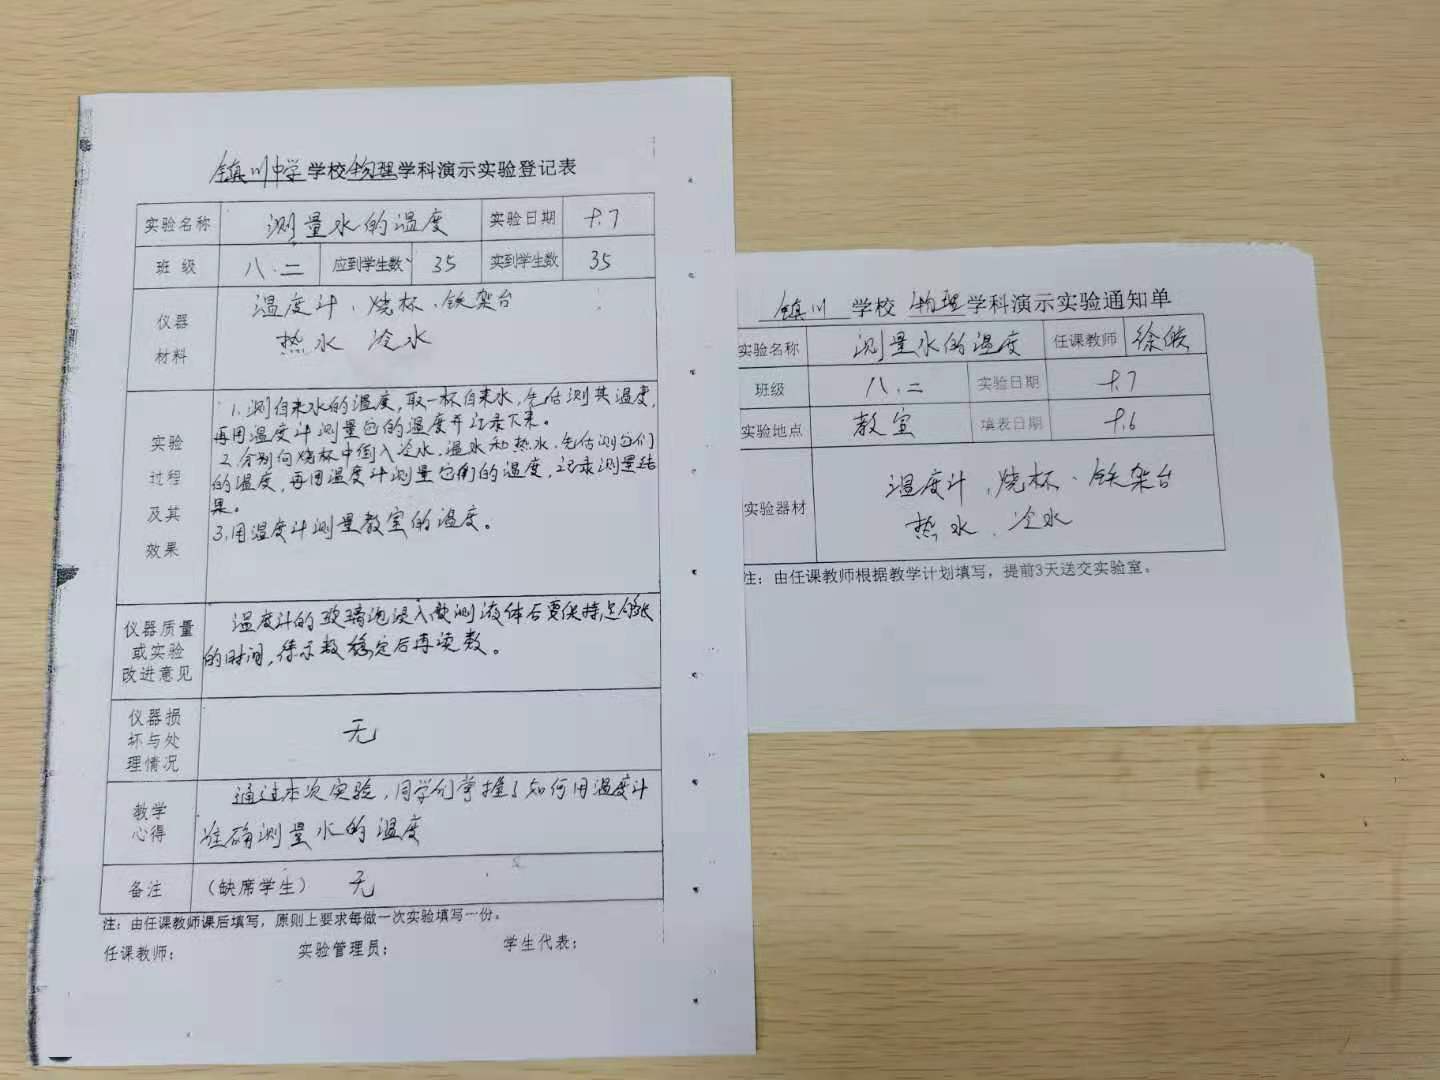 镇川中学学校物理学科演示实验登记表
实验名称 测量水的温度 实验日期 9.7
班级 八.二 应到学生数 35 实到学生数 35
仪器 温度计、烧杯、铁架台
材料 热水 冷水
实验
过程
及其
效果
1.测自来水的温度,取一杯自来水,先估测其温度,
再用温度计测量它的温度并记录下来。
2.分别向烧杯中倒入冷水、温水和热水,先估测它们
的温度,再用温度计测量它们的温度,记录测量结
果。
3.用温度计测量教室的温度。
仪器质量
或实验
改进意见
温度计的玻璃泡浸入被测液体后要保持足够长
的时间,待示数稳定后再读数。
仪器损
坏与处
理情况
无
教学
心得
通过本次实验,同学们掌握了如何用温度计
准确测量水的温度
备注 (缺席学生) 无
注:由任课教师课后填写,原则上要求每做一次实验填写一份。
任课教师: 实验管理员: 学生代表:
镇川 学校 物理学科演示实验通知单
实验名称 测量水的温度 任课教师 徐
班级 八.二 实验日期 9.7
实验地点 教室 填表日期 9.6
实验器材
温度计、烧杯、铁架台
热水、冷水
注:由任课教师根据教学计划填写,提前3天送交实验室。